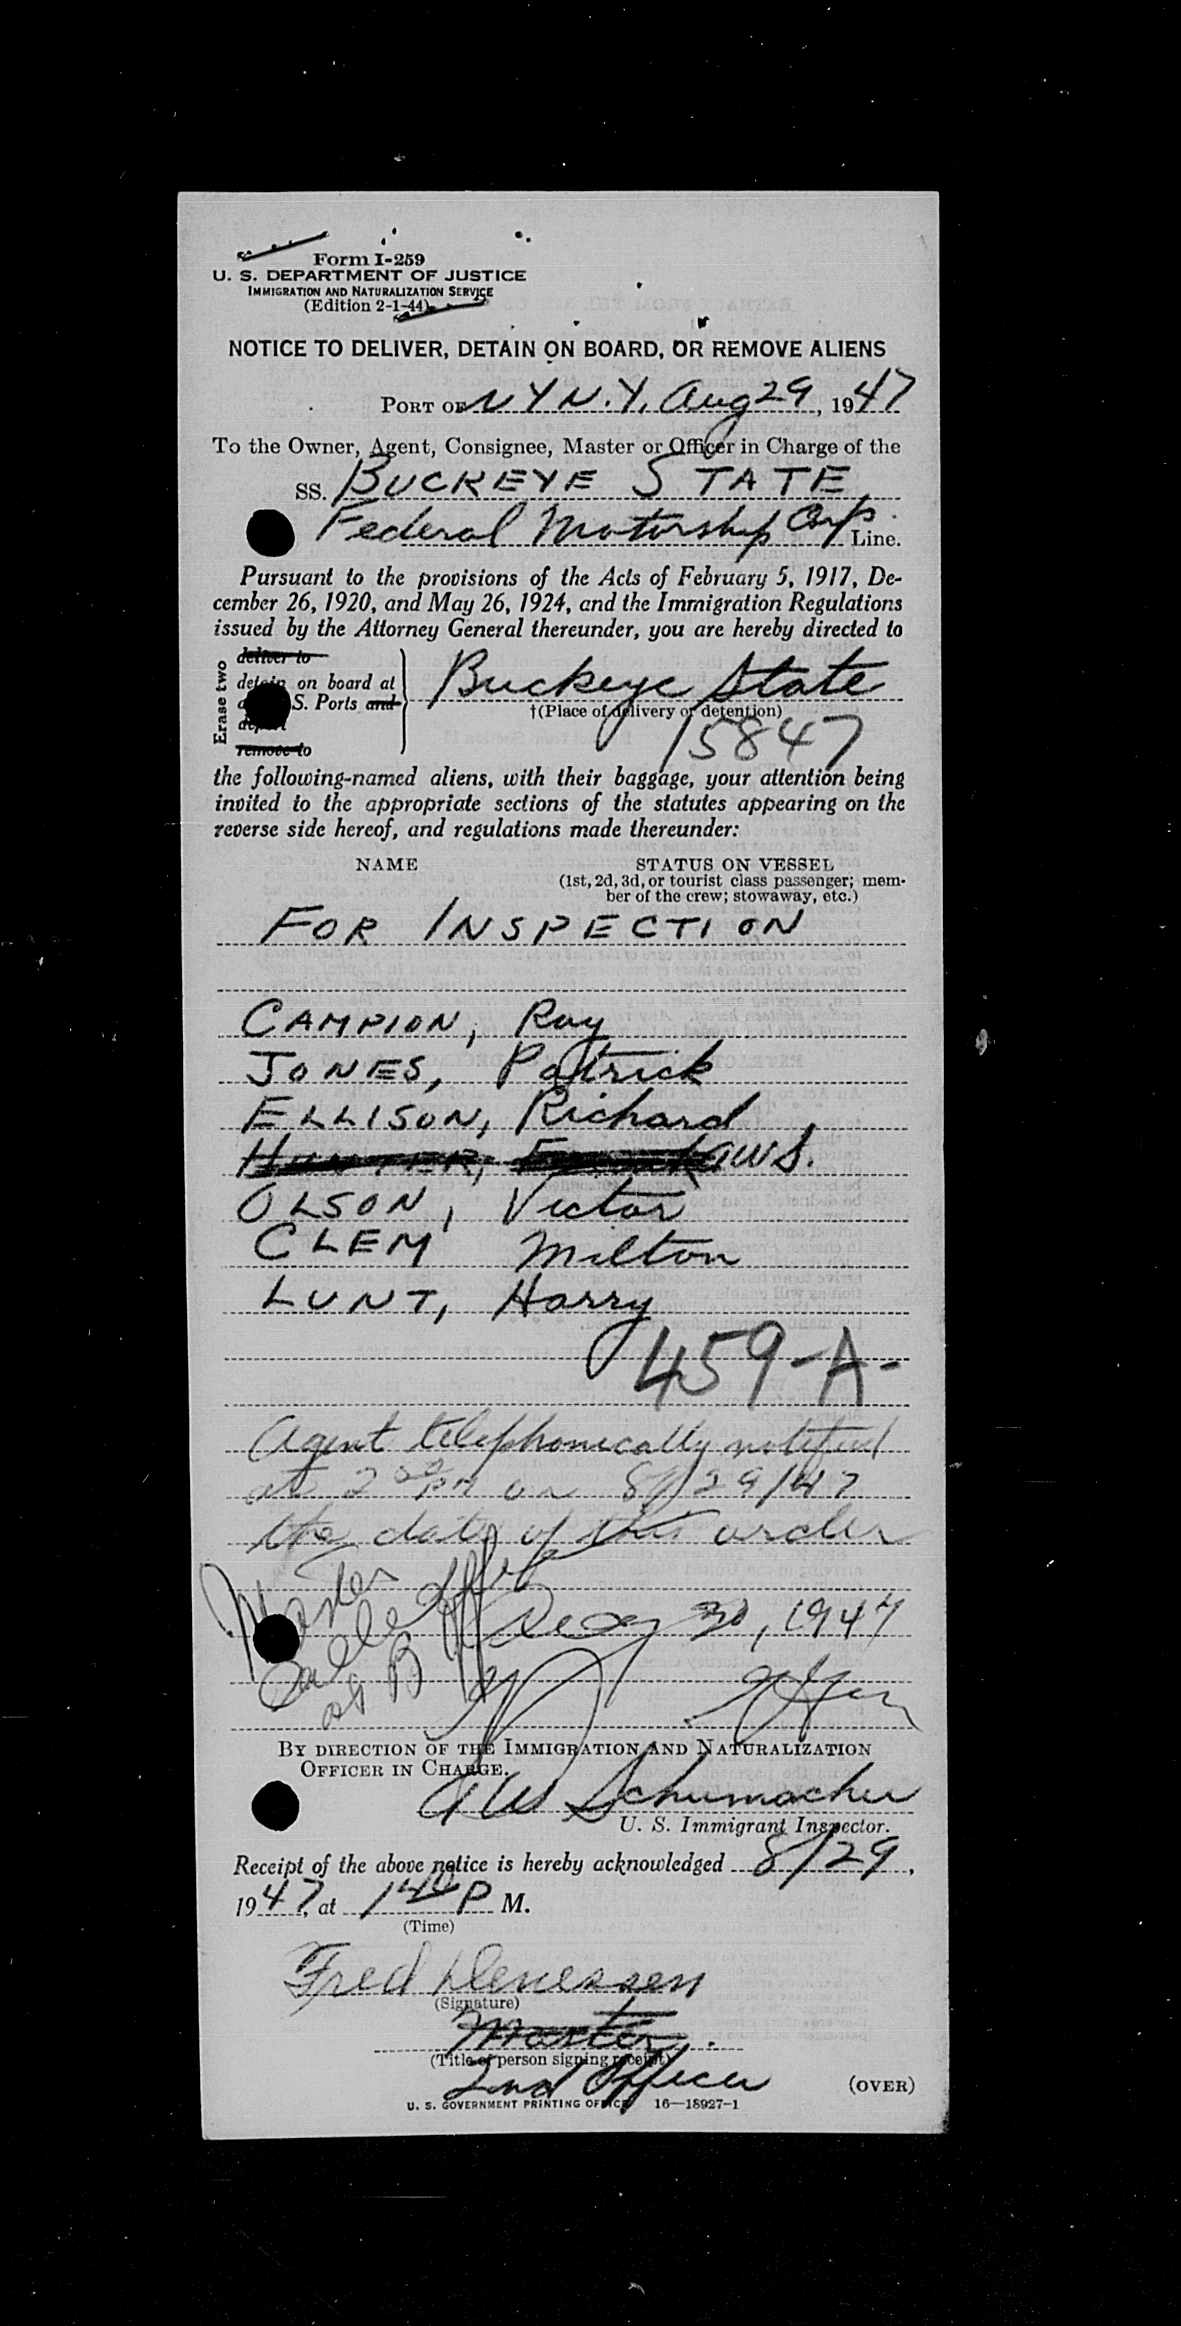 Form I-259
U. S. DEPARTMENT OF JUSTICE
IMMIGRATION AND NATURALIZATION SERVICE
(Edition 2-1-44)
NOTICE TO DELIVER, DETAIN ON BOARD, OR REMOVE ALIENS
PORT OF N Y N.Y. Aug 29, 1947
To the Owner, Agent, Consignee, Master or Officer in Charge of the
SS. BUCKEYE STATE
Federal Motorship Corp. Line.
Pursuant to the provisions of the Acts of February 5, 1917, De-
cember 26, 1920, and May 26, 1924, and the Immigration Regulations
issued by the Attorney General thereunder, you are hereby directed to
Erase two
deliver to
detain on board at
S. Ports and
deport
remove to
Buckeye State
†(Place of delivery or detention)
15847
the following-named aliens, with their baggage, your attention being
invited to the appropriate sections of the statutes appearing on the
reverse side hereof, and regulations made thereunder:
NAME STATUS ON VESSEL
(1st, 2d, 3d, or tourist class passenger; mem-
ber of the crew; stowaway, etc.)
FOR INSPECTION
CAMPION, Ray
JONES, Patrick
ELLISON, Richard
HUNTER, Frank AWS.
OLSON, Victor
CLEM Milton
LUNT, Harry
459-A-
Agent telephonically notified
at 2 00 PM on 8/29/47
the date of this order
Master
at B
30, 1947
BY DIRECTION OF THE IMMIGRATION AND NATURALIZATION
OFFICER IN CHARGE.
A W Schumacher
U. S. Immigrant Inspector.
Receipt of the above notice is hereby acknowledged 8/29,
1947, at 1 40 P M.
(Time)
Fred
(Signature)
Master.
(Title of person signing receipt)
2nd Officer
(OVER)
U. S. GOVERNMENT PRINTING OFFICE 16—18927-1